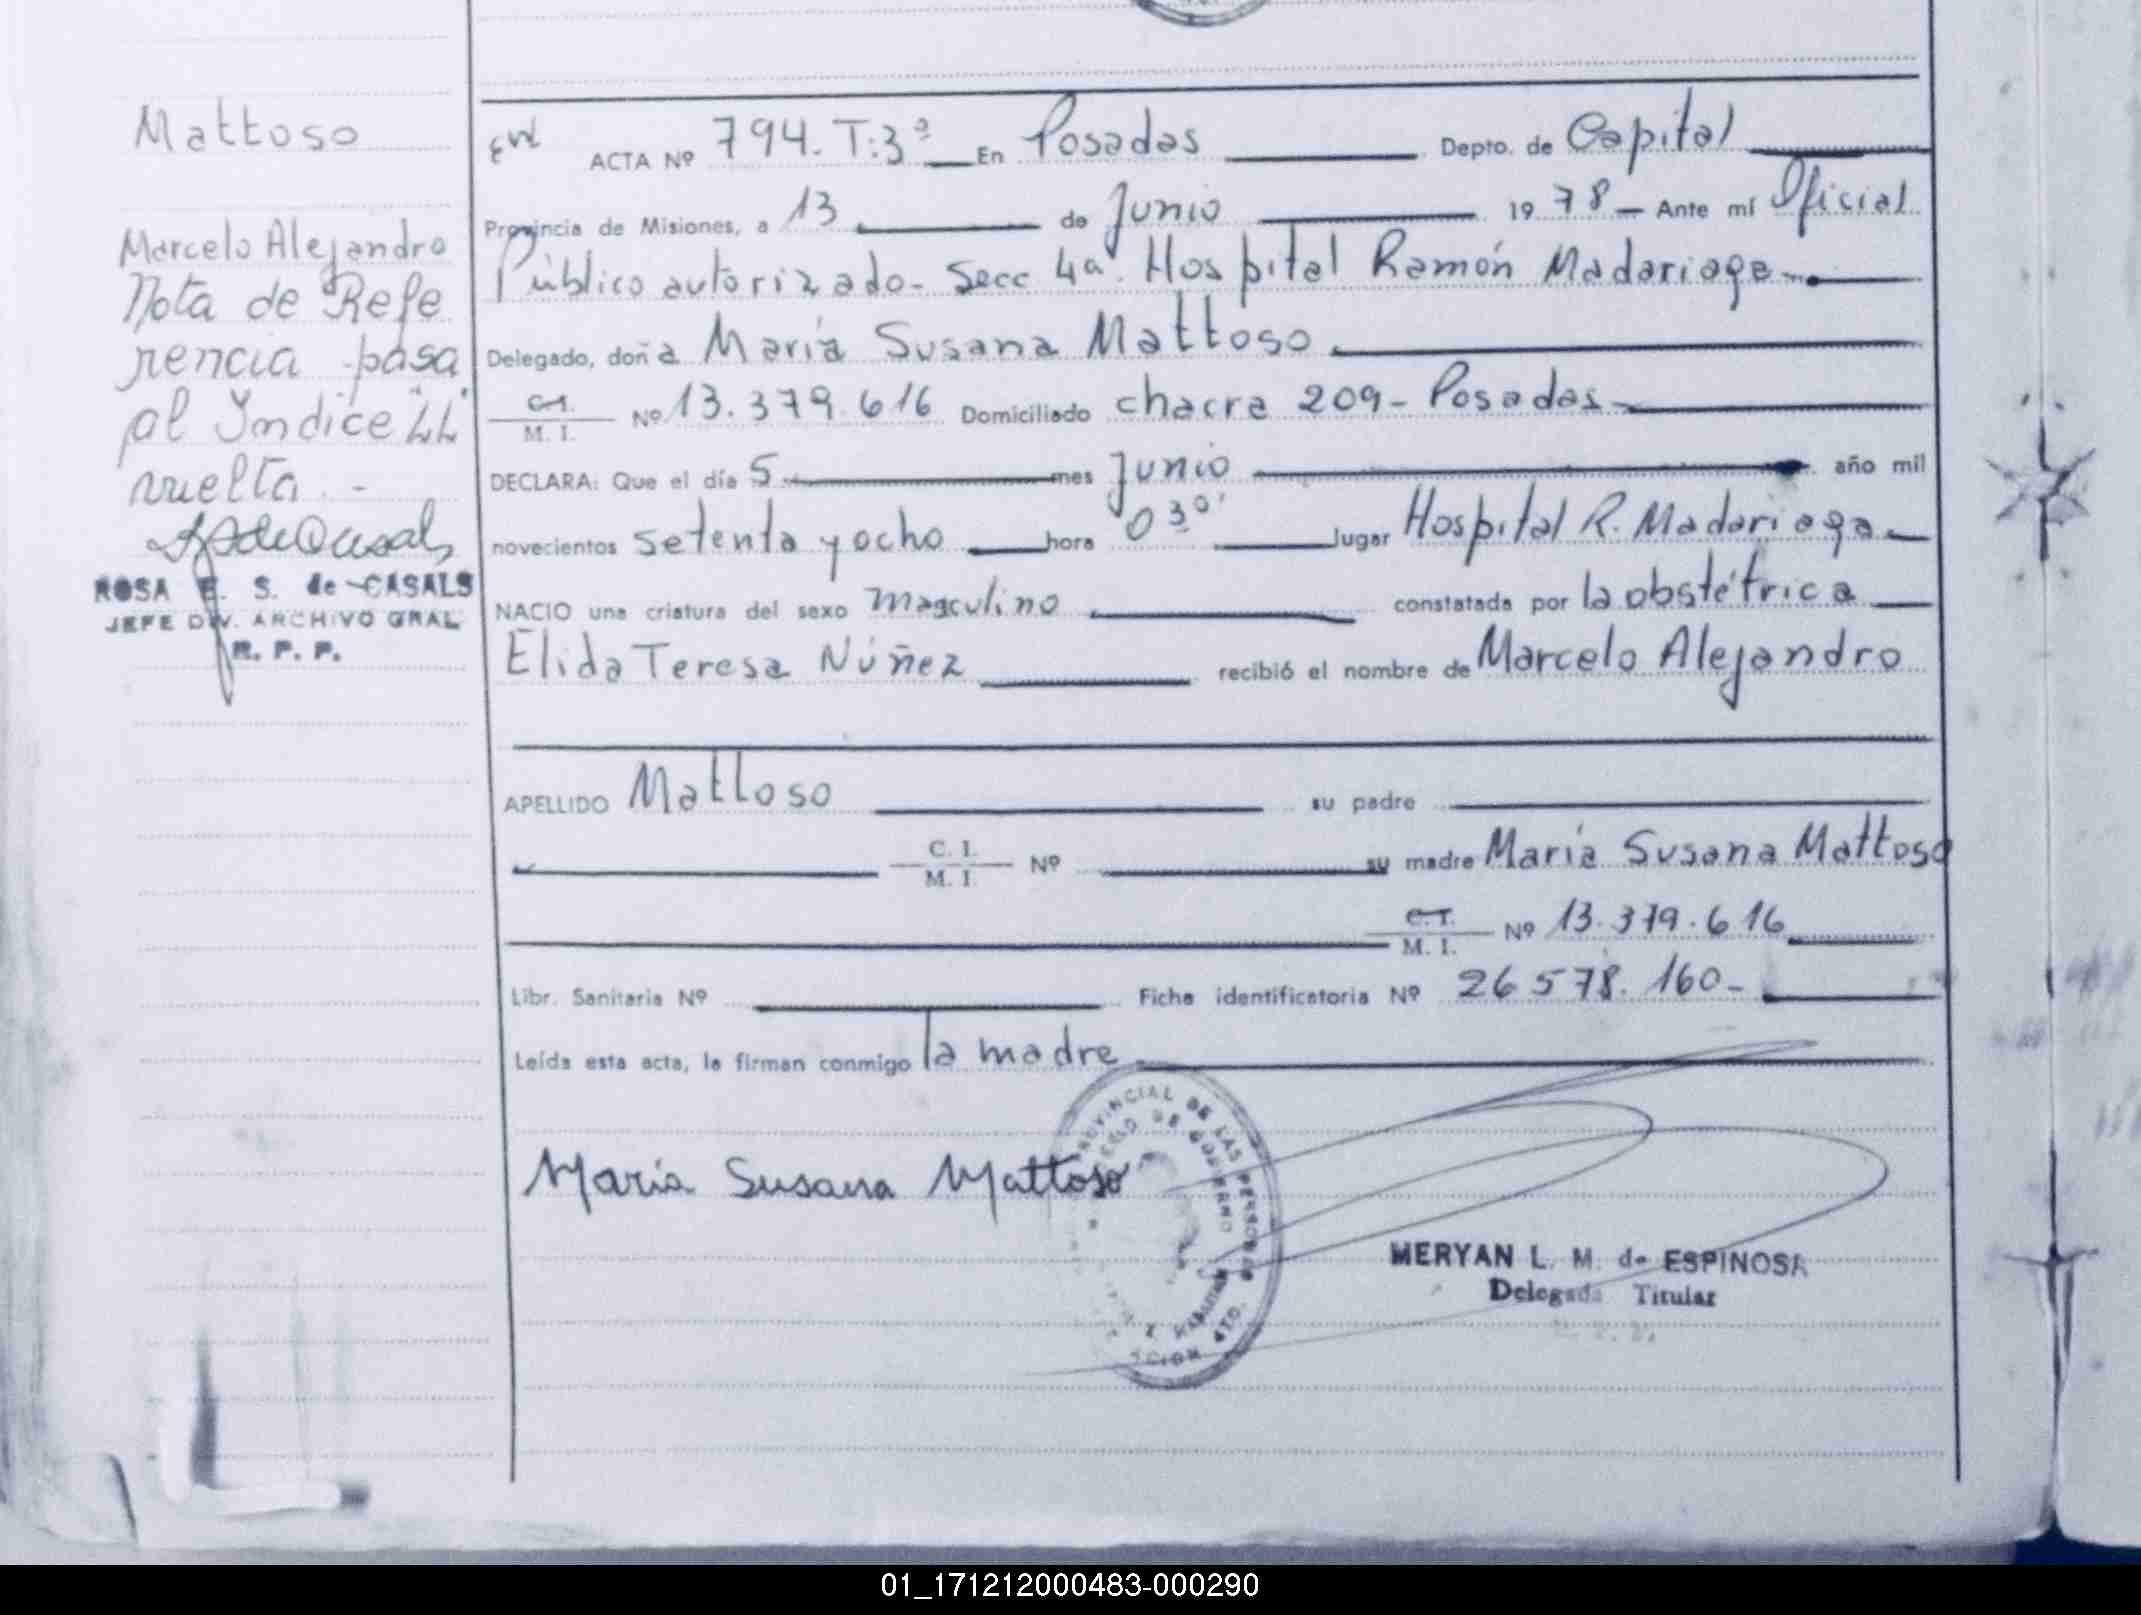 Mattoso
Marcelo Alejandro
Nota de Refe
rencia pasa
al Yndice "LL"
vuelta.-
ROSA E. S. de CASALS
JEFE DIV. ARCHIVO GRAL
R. P. P.
ACTA Nº 794. T:3ª En Posadas Depto. de Capital
Provincia de Misiones, a 13 de Junio 1978 - Ante mí Oficial
Público autorizado - Secc 4a. Hospital Ramón Madariaga -
Delegado, doña María Susana Mattoso
C.I. M. I. Nº 13.379.616 Domiciliado chacra 209 - Posadas -
DECLARA: Que el día 5 mes Junio año mil
novecientos setenta y ocho hora 0 30' lugar Hospital R. Madariaga
NACIO una criatura del sexo masculino constatada por la obstétrica
Elida Teresa Núñez recibió el nombre de Marcelo Alejandro
APELLIDO Mattoso su padre
C. I. M. I. Nº su madre María Susana Mattoso
C.I. M. I. Nº 13.379.616
Libr. Sanitaria Nº Ficha identificatoria Nº 26 578. 160 -
Leída esta acta, la firman conmigo la madre
María Susana Mattoso
PROVINCIAL DE LAS PERSONAS
DE GOBIERNO
MERYAN L. M. de ESPINOSA
Delegada Titular
01_171212000483-000290